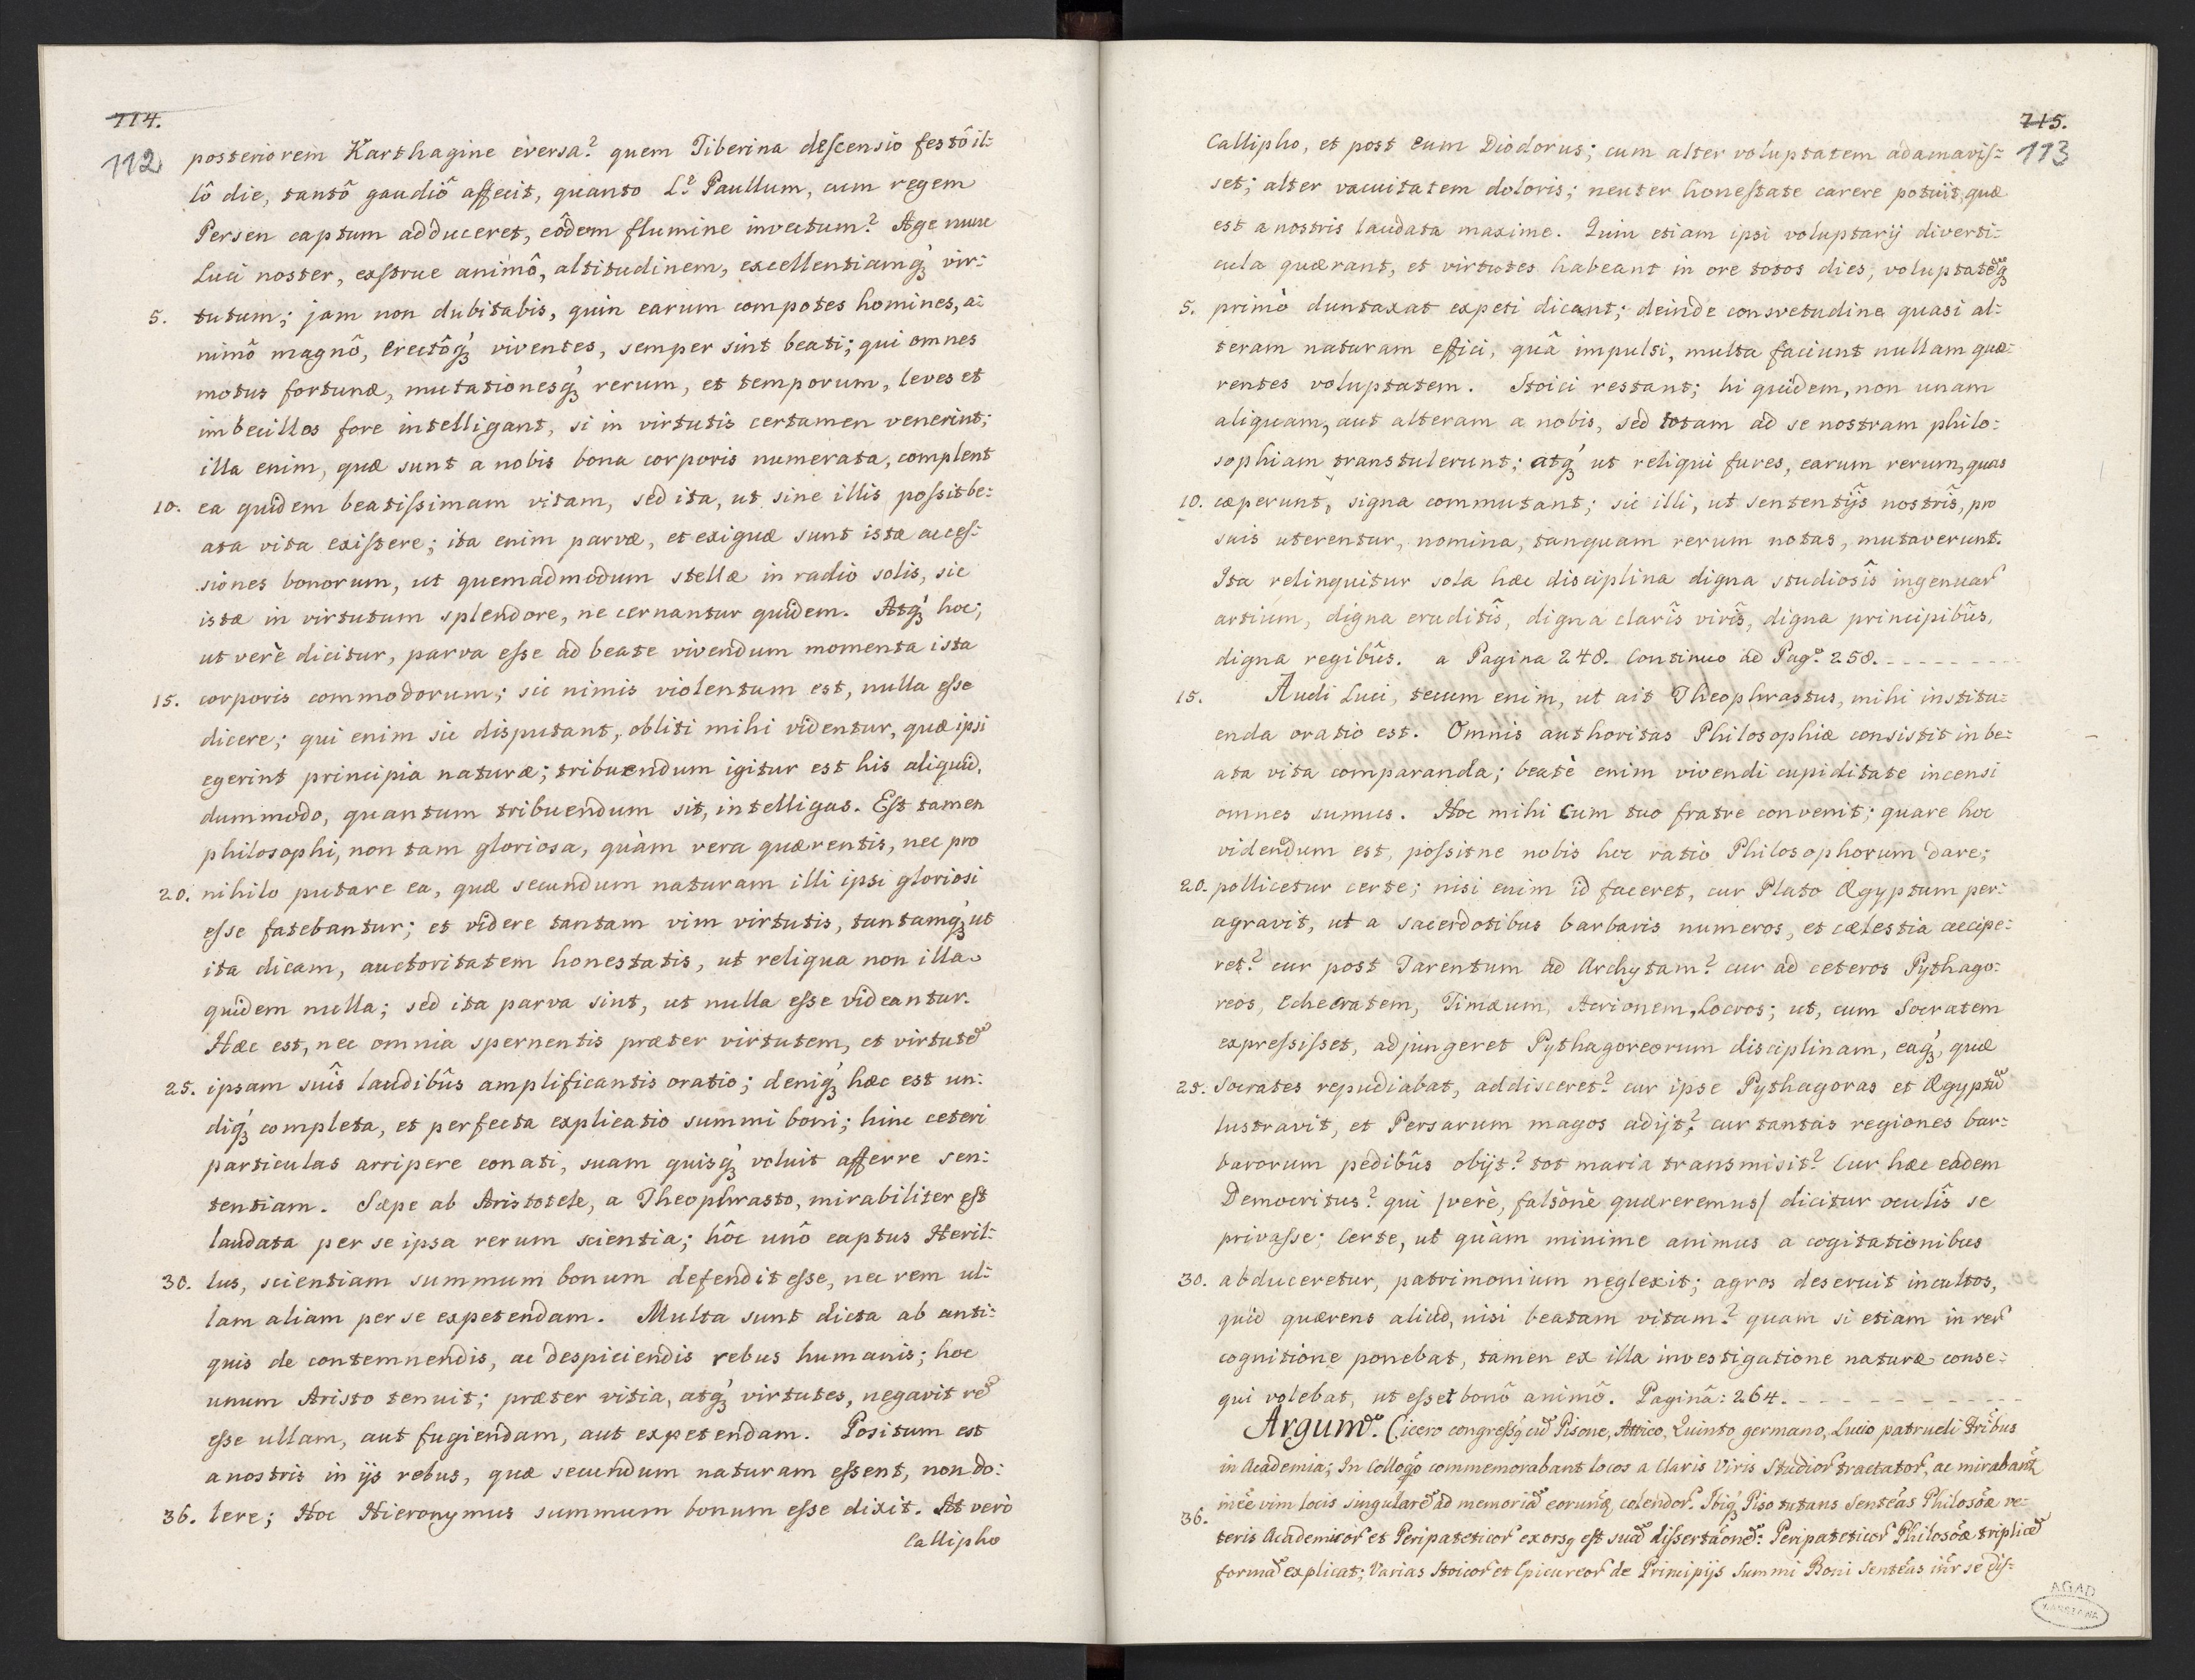 114.
112
posteriorem Karthagine eversa? quem Tiberina descensio festô il:
lô die, tantô gaudiô affecit, quanto L.ͤ Paullum, cum regem
Persen captum adduceret, eôdem flumine invectum? Age nunc
Luci noster, exstrue animô, altitudinem, excellentiamq́ꝫ vir:
5. tutum; jam non dubitabis, quin earum compotes homines, a:
nimô magnô, erectôq́ꝫ viventes, semper sint beati; qui omnes
motus fortunæ, mutationesq́ꝫ rerum, et temporum, leves et
imbecillos fore intelligant, si in virtutis certamen venerint;
illa enim, quæ sunt a nobis bona corporis numerata, complent
10. ea quidem beatissimam vitam, sed ita, ut sine illis possit be:
ata vita existere; ita enim parvæ, et exiguæ sunt istæ acces:
siones bonorum, ut quemadmodum stellæ in radio solis, sic
istæ in virtutum splendore, ne cernantur quidem. Atq́ꝫ hoc;
ut verè dicitur, parva esse ad beate vivendum momenta ista
15. corporis commodorum; sic nimis violentum est, nulla esse
dicere; qui enim sic disputant, obliti mihi videntur, quæ ipsi
egerint principia naturæ; tribuendum igitur est his aliquid,
dummodo, quantum tribuendum sit, intelligas. Est tamen
philosophi, non tam gloriosa, quàm vera quærentis, nec pro
20. nihilo putare ea, quæ secundum naturam illi ipsi gloriosi
esse fatebantur; et videre tantam vim virtutis, tantamq́ꝫ ut
ita dicam, auctoritatem honestatis, ut reliqua non illa
quidem nulla; sed ita parva sint, ut nulla esse videantur.
Hæc est, nec omnia spernentis præter virtutem, et virtutẽ
25. ipsam suîs laudibûs amplificantis oratio; deniq́ꝫ hæc est un:
diq́ꝫ completa, et perfecta explicatio summi boni; hinc ceteri
particulas arripere conati, suam quisq́ꝫ voluit afferre sen:
tentiam. Sæpe ab Aristotele, a Theophrasto, mirabiliter est
laudata per se ipsa rerum scientia; hôc unô captus Heril:
30. lus, scientiam summum bonum defendit esse, nec rem ul:
lam aliam per se expetendam. Multa sunt dicta ab anti:
quis de contemnendis, ac despiciendis rebus humanis; hoc
unum Aristo tenuit; præter vitia, atq́ꝫ virtutes, negavit rẽ
esse ullam, aut fugiendam, aut expetendam. Positum est
a nostris in ijs rebus, quæ secundum naturam essent, non do:
36. lere; Hoc Hieronymus summum bonum esse dixit. At verò
Callipho
715.
113
Callipho, et post eum Diodorus; cum alter voluptatem adamavis:
set; alter vacuitatem doloris; neuter honestate carere potuit, quæ
est a nostris laudata maxime. Quin etiam ipsi voluptarij diverti:
cula quærant, et virtutes habeant in ore totos dies, voluptatẽqꝫ
5. primò duntaxat expeti dicant; deinde consvetudine quasi al:
teram naturam effici, quâ impulsi, multa faciunt nullam quæ:
rentes voluptatem. Stoici restant; hi quidem, non unam
aliquam, aut alteram a nobis, sed totam ad se nostram philo:
sophiam transtulerunt; atq́ꝫ ut reliqui fures, earum rerum, quas
10. cæperunt, signa commutant; sic illi, ut sententijs nostrîs, pro
suis uterentur, nomina, tanquam rerum notas, mutaverunt.
Ita relinquitur sola hæc disciplina digna studiosîs ingenuar̃
artium, digna eruditîs, digna clarîs virîs, digna principibûs,
digna regibûs. a Pagina 248. Continuo ad Pag.ͫ 258.
15. Audi Luci, tecum enim, ut ait Theophrastus, mihi institu:
enda oratio est. Omnis authoritas Philosophiæ consistit in be:
ata vita comparanda; beatè enim vivendi cupiditate incensi
omnes sumus. Hoc mihi Cum tuo fratre convenit; quare hoc
videndum est, possitne nobis hoc ratio Philosophorum dare;
20. pollicetur certe; nisi enim id faceret, cur Plato Ægyptum per:
agravit, ut a sacerdotibus barbaris numeros, et cælestia accipe:
ret? cur post Tarentum ad Archytam? cur ad ceteros Pythago:
reos, Echecratem, Timæum, Acrionem, Locros; ut, cum Socratem
expressisset, adjungeret Pythagoreorum disciplinam, eaq́ꝫ, quæ
25. Socrates repudiabat, addisceret? cur ipse Pythagoras et Ægyptũ
lustravit, et Persarum magos adijt? cur tantas regiones bar:
barorum pedibûs obijt? tot maria transmisit? Cur hæc eadem
Democritus? qui /verè, falsònè quæreremus/ dicitur oculîs se
privasse; Certe, ut quàm minime animus a cogitationibus
30. abduceretur, patrimonium neglexit; agros deseruit incultos,
quid quærens aliud, nisi beatam vitam? quam si etiam in rer̃
cognitione ponebat, tamen ex illa investigatione naturæ conse:
qui volebat, ut esset bonô animô. Paginâ: 264.
Argumẽ. Cicero congressq cũ Pisone, Attico, Quinto germano, Lucio patrueli tribus
in Academia; In Colloqo commemorabant locos a Claris Viris Studior̃ tractator̃, ac mirabant̃
inẽẽ vim locis singularẽ ad memoriã eorunq̃, colendor̃. Ibiq́ꝫ Piso tutans Sentẽas Philosõæ ve:
36. teris Academicor̃ et Peripateticor̃ exorsq est suã dissertãonẽ: Peripateticor̃ Philosõæ triplicẽ
formã explicat; Varias Stoicor̃ et Epicureor̃ de Principijs Summi Boni Sentẽas inr̃ se dis:
AGAD
WARSZAWA